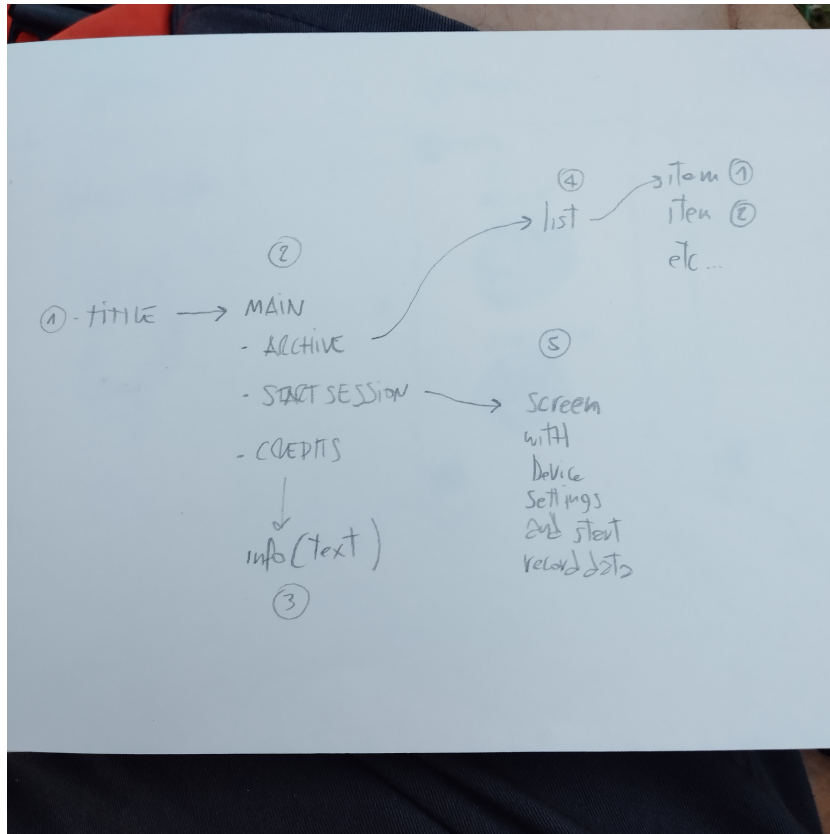 ① - TITLE → MAIN
②
- ARCHIVE
- START SESSION
- CREDITS
info (text)
③
④
list
item ①
item ②
etc...
⑤
screen
with
Device
Settings
and start
record data